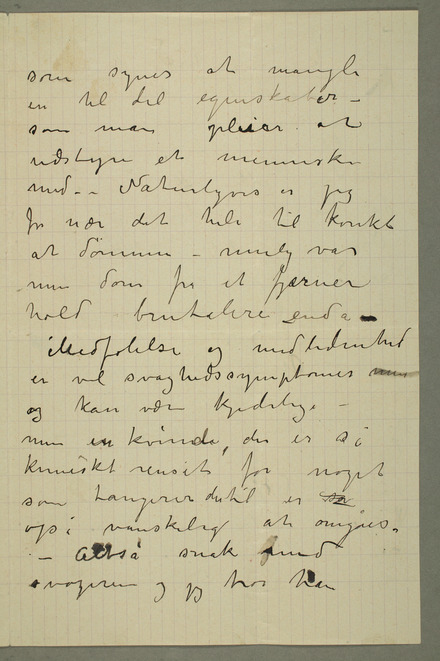 som synes at mangle
en til del egenskaber –
som man pleier at
udstyre et menneske
med – Naturligvis er jeg
for nær det hele til korekt
at dømme – mulig var
min dom fra et fjærner
hold brutalere enda –
Medfølelse og medlidenhed
er vel svaghedssymptomer
og kan være kjedelige –
men en kvinde, der er så
kemiskt renset for noget
som tangerer dertil er
også vanskelig at omgåes.
– Altså snak med
svogeren og jeg tror han